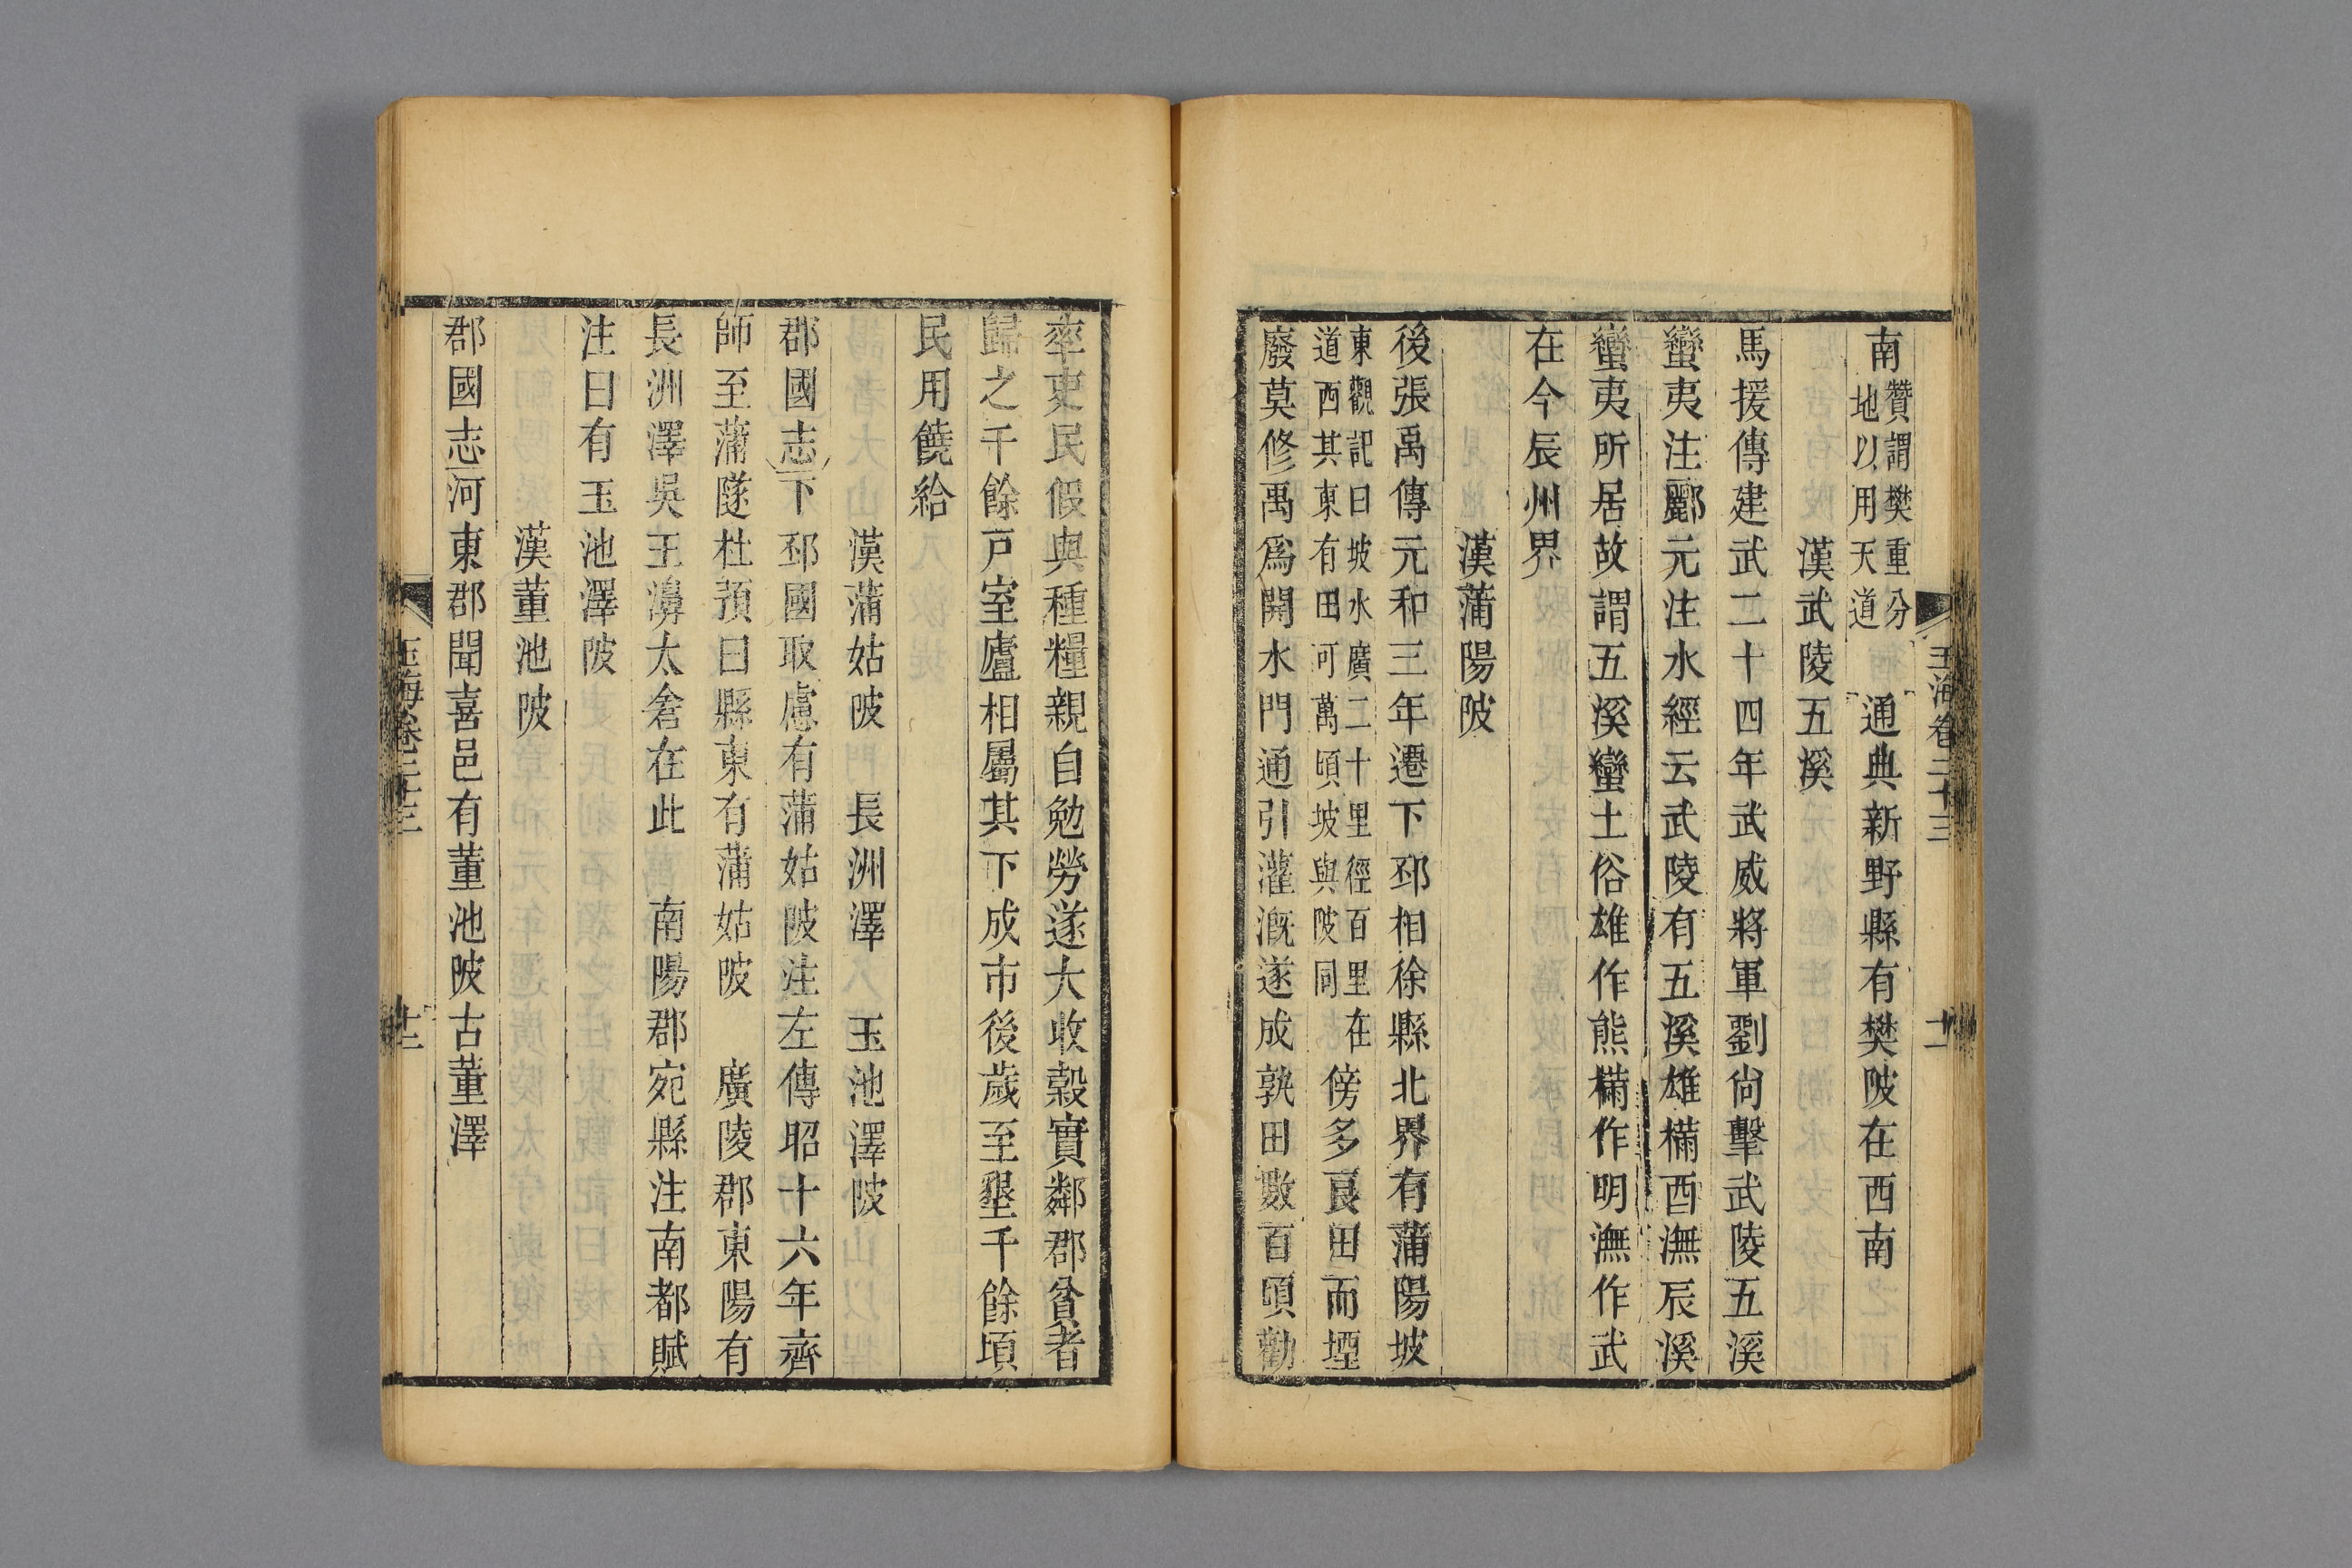 玉海卷二十三 十一
南 贊謂樊重分地以用天道 通典新野縣有樊陂在西南
漢武陵五溪
馬援傳建武二十四年武威將軍劉尙擊武陵五溪
蠻夷注酈元注水經云武陵有五溪雄樠酉潕辰溪
蠻夷所居故謂五溪蠻土俗雄作熊樠作明潕作武
在今辰州界
漢蒲陽陂
後張禹傳元和三年遷下邳相徐縣北界有蒲陽坡
東觀記曰坡水廣二十里徑百里在道西其東有田可萬頃坡與陂同 傍多良田而堙
廢莫修禹爲開水門通引灌溉遂成孰田數百頃勸
率吏民假與種糧親自勉勞遂大收穀實鄰郡貧者
歸之千餘戸室廬相屬其下成市後歲至墾千餘頃
民用饒給
漢蒲姑陂 長洲澤 玉池澤陂
郡國志下邳國取慮有蒲姑陂注左傳昭十六年齊
師至蒲隧杜預曰縣東有蒲姑陂 廣陵郡東陽有
長洲澤吳王濞太倉在此 南陽郡宛縣注南都賦
注曰有玉池澤陂
漢董池陂
郡國志河東郡聞喜邑有董池陂古董澤
玉海卷二十三 十二